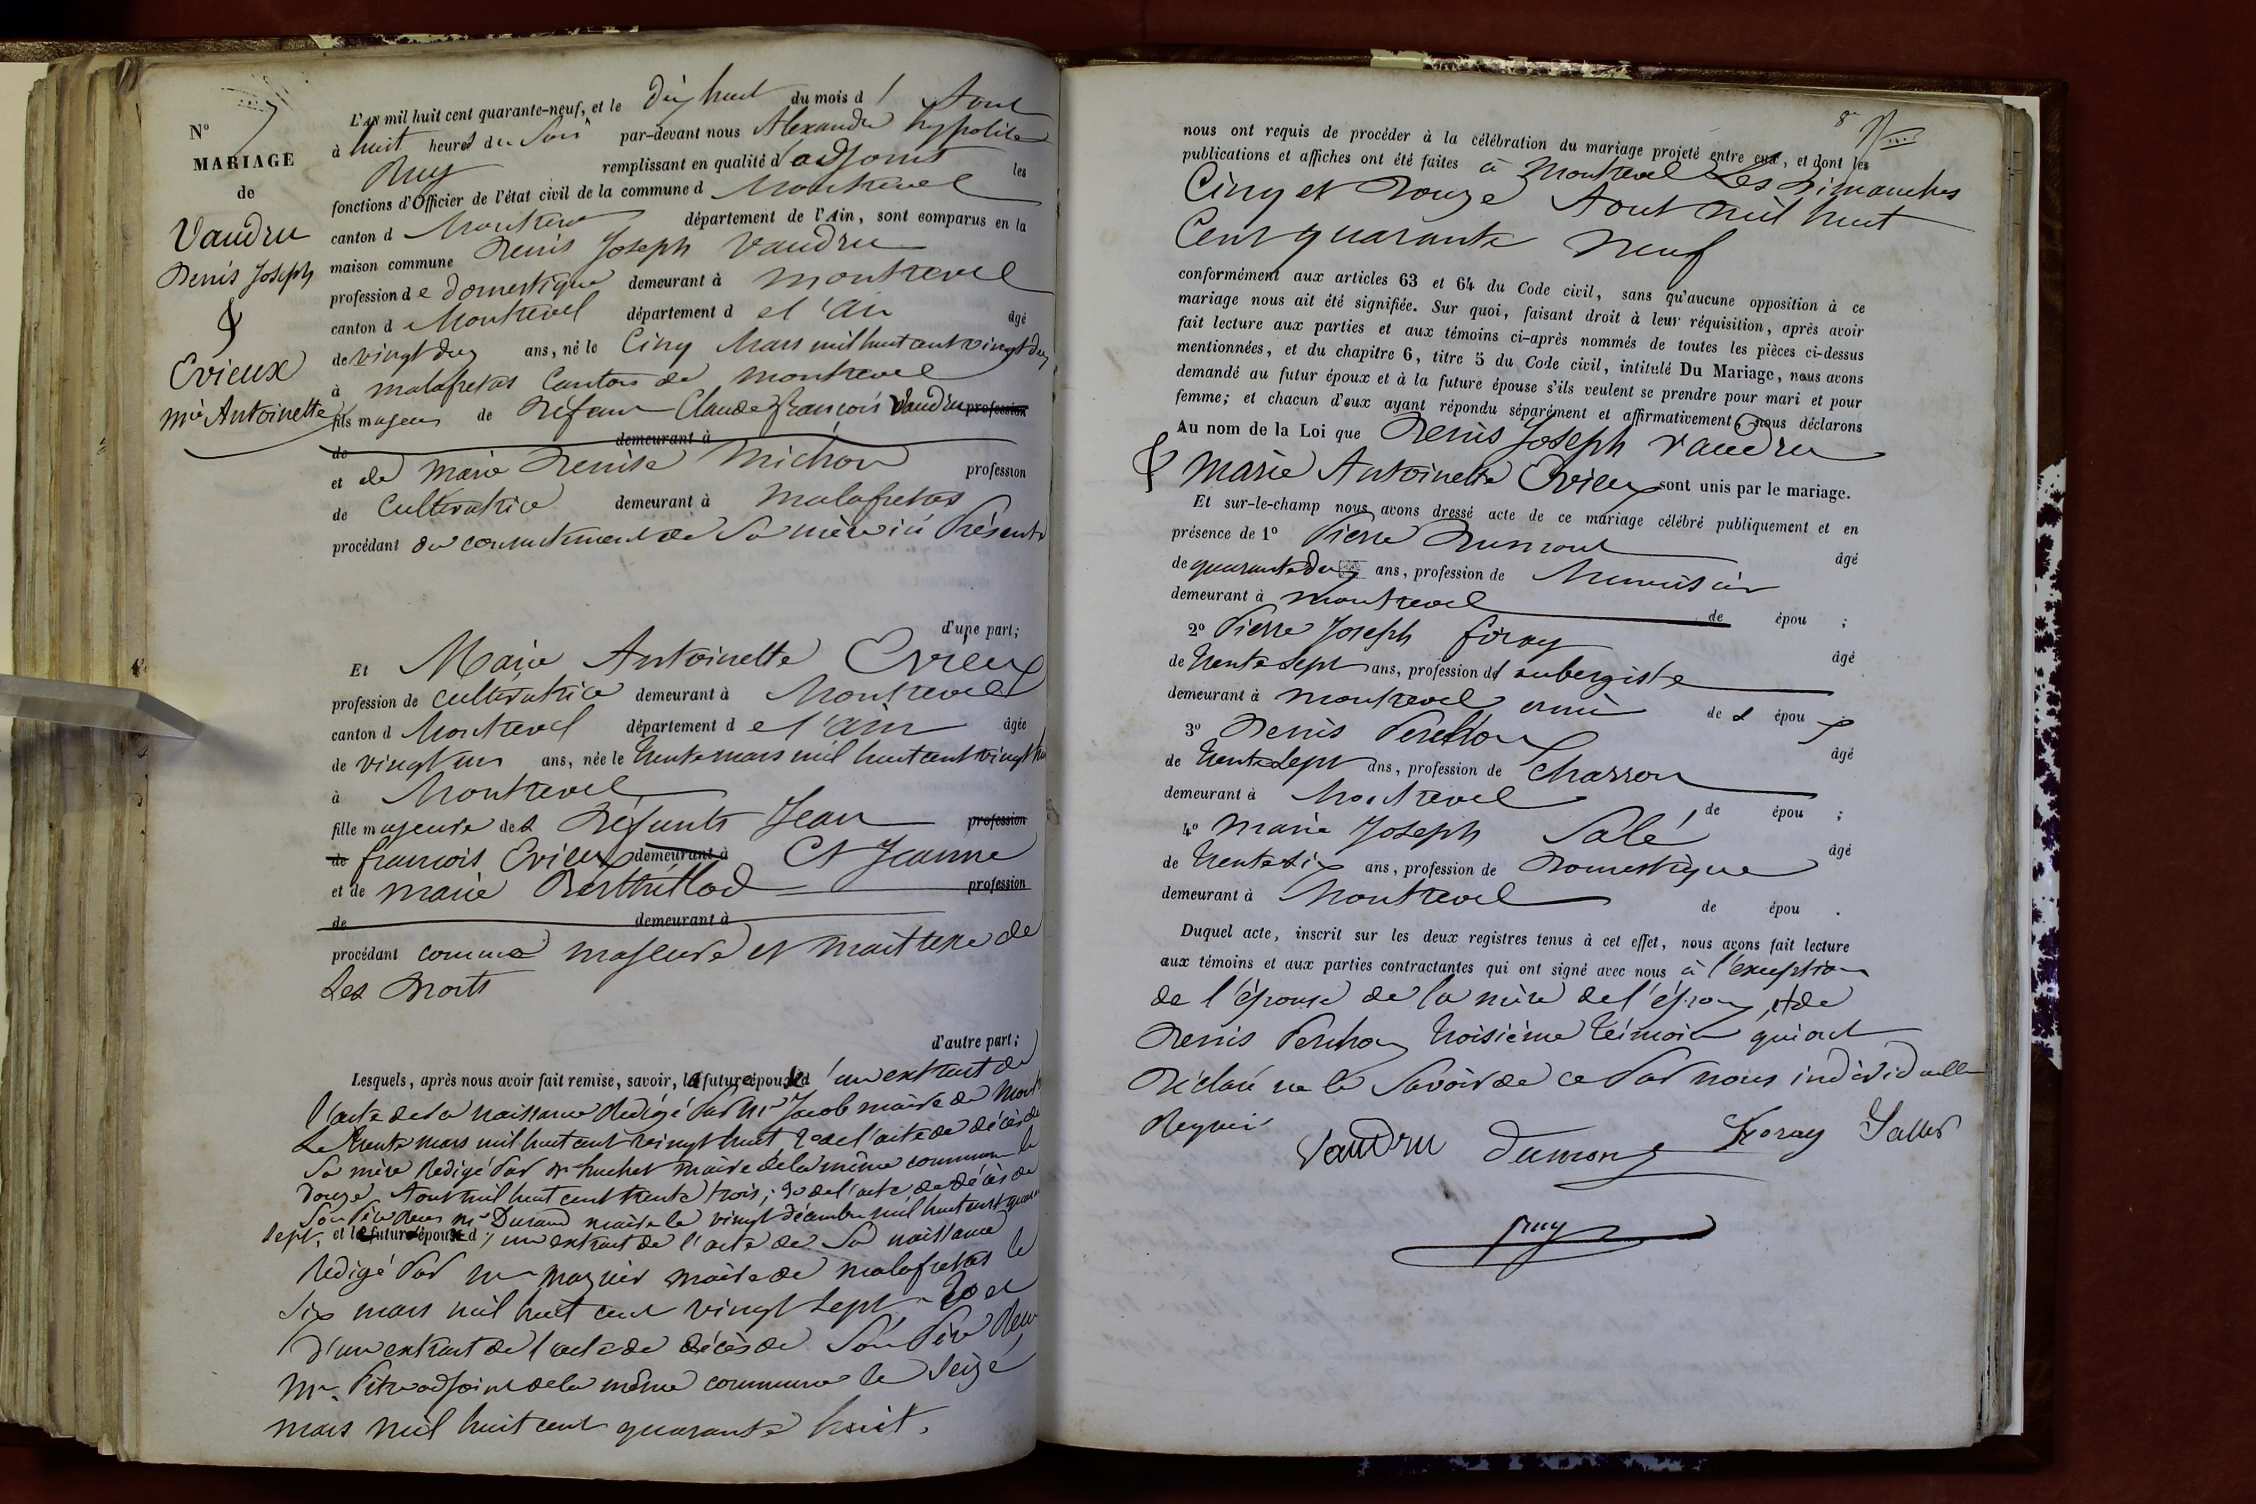 N° 7
MARIAGE
de
Vaudru
Denis Joseph
&
Evieux
Mie Antoinette
L'AN mil huit cent quarante-neuf, et le dix huit du mois d' Aout
à huit heures du Soir par-devant nous Alexandre hypolite
Puy remplissant en qualité d'adjoint les
fonctions d'Officier de l'état civil de la commune d Montrevel
canton d Montrevel département de l'Ain, sont comparus en la
maison commune Denis Joseph Vaudru
profession de domestique demeurant à Montrevel
canton d Montrevel département d e l'ain âgé
de vingt deux ans, né le Cinq Mars mil huit cent vingt
à malafretas Canton de montrevel
fils majeur de Défunt Claude françois Vaudru profession
de demeurant à
et de Marie Denise Michon profession
de Cultivatrice demeurant à Malafretas
procédant du consentement de Sa mère ici Présente
d'une part;
Et Marie Antoinette Evieux
profession de cultivatrice demeurant à Montrevel
canton d Montrevel département d e l'ain âgée
de vingt un ans, née le trente mars mil huit cent vingt
à Montrevel
fille majeure des Défunts Jean profession
de francois Evieux demeurant à Et Jeanne
et de marie Berthillod profession
de demeurant à
procédant comme majeure et maitresse de
Ses Droits
d'autre part;
Lesquels, après nous avoir fait remise, savoir, la future épouse d'un extrait de
l'acte de sa naissance Redigé Par Mr Jacob maire de Mont
Le trente mars mil huit cent vingt huit 2o de l'acte de décès de
Sa mère Redigé Par mr huchet Maire de la même commune le
Douze Aout mil huit cent trente trois; 3o de l'acte de décès de
Son Père Reçu mr Durand maire le vingt décembre mil huit cent
Sept, et le futur époux d'un extrait de l'acte de Sa naissance
Redigé Par mr maire de malafretas le
Six mars mil huit cent vingt Sept 2o et
D'un extrait de l'acte de décès de Son Père
Mr. adjoint de la même commune le Seize
mars mil huit cent quarante huit.
8
nous ont requis de procéder à la célébration du mariage projeté entre eux, et dont les
publications et affiches ont été faites à Montrevel Les Dimanches
Cinq et Douze Aout mil huit
Cent quarante Neuf
conformément aux articles 63 et 64 du Code civil, sans qu'aucune opposition à ce
mariage nous ait été signifiée. Sur quoi, faisant droit à leur réquisition, après avoir
fait lecture aux parties et aux témoins ci-après nommés de toutes les pièces ci-dessus
mentionnées, et du chapitre 6, titre 5 du Code civil, intitulé Du Mariage, nous avons
demandé au futur époux et à la future épouse s'ils veulent se prendre pour mari et pour
femme; et chacun d'eux ayant répondu séparément et affirmativement, nous déclarons
Au nom de la Loi que Denis Joseph Vaudru
& Marie Antoinette Evieux sont unis par le mariage.
Et sur-le-champ nous avons dressé acte de ce mariage célébré publiquement et en
présence de 1° Pierre Dumont âgé
de quarante deux ans, profession de Menuisier
demeurant à montrevel de épou ;
2° Pierre Joseph foray âgé
de trente Sept ans, profession d' aubergiste
demeurant à montrevel amis de s épou x
3° Denis Peuthon âgé
de trente Sept ans, profession de Charron
demeurant à Montrevel de épou ;
4° Marie Joseph Salé âgé
de trente Six ans, profession de Domestique
demeurant à Montrevel de épou .
Duquel acte, inscrit sur les deux registres tenus à cet effet, nous avons fait lecture
aux témoins et aux parties contractantes qui ont signé avec nous à l'exeption
de l'épouse de la mère de l'époux et de
Denis troisième témoin qui ont
Déclaré ne le Savoir de ce Par nous individuellement
Requis
Vaudru Dumont Foray Sallet
Puy